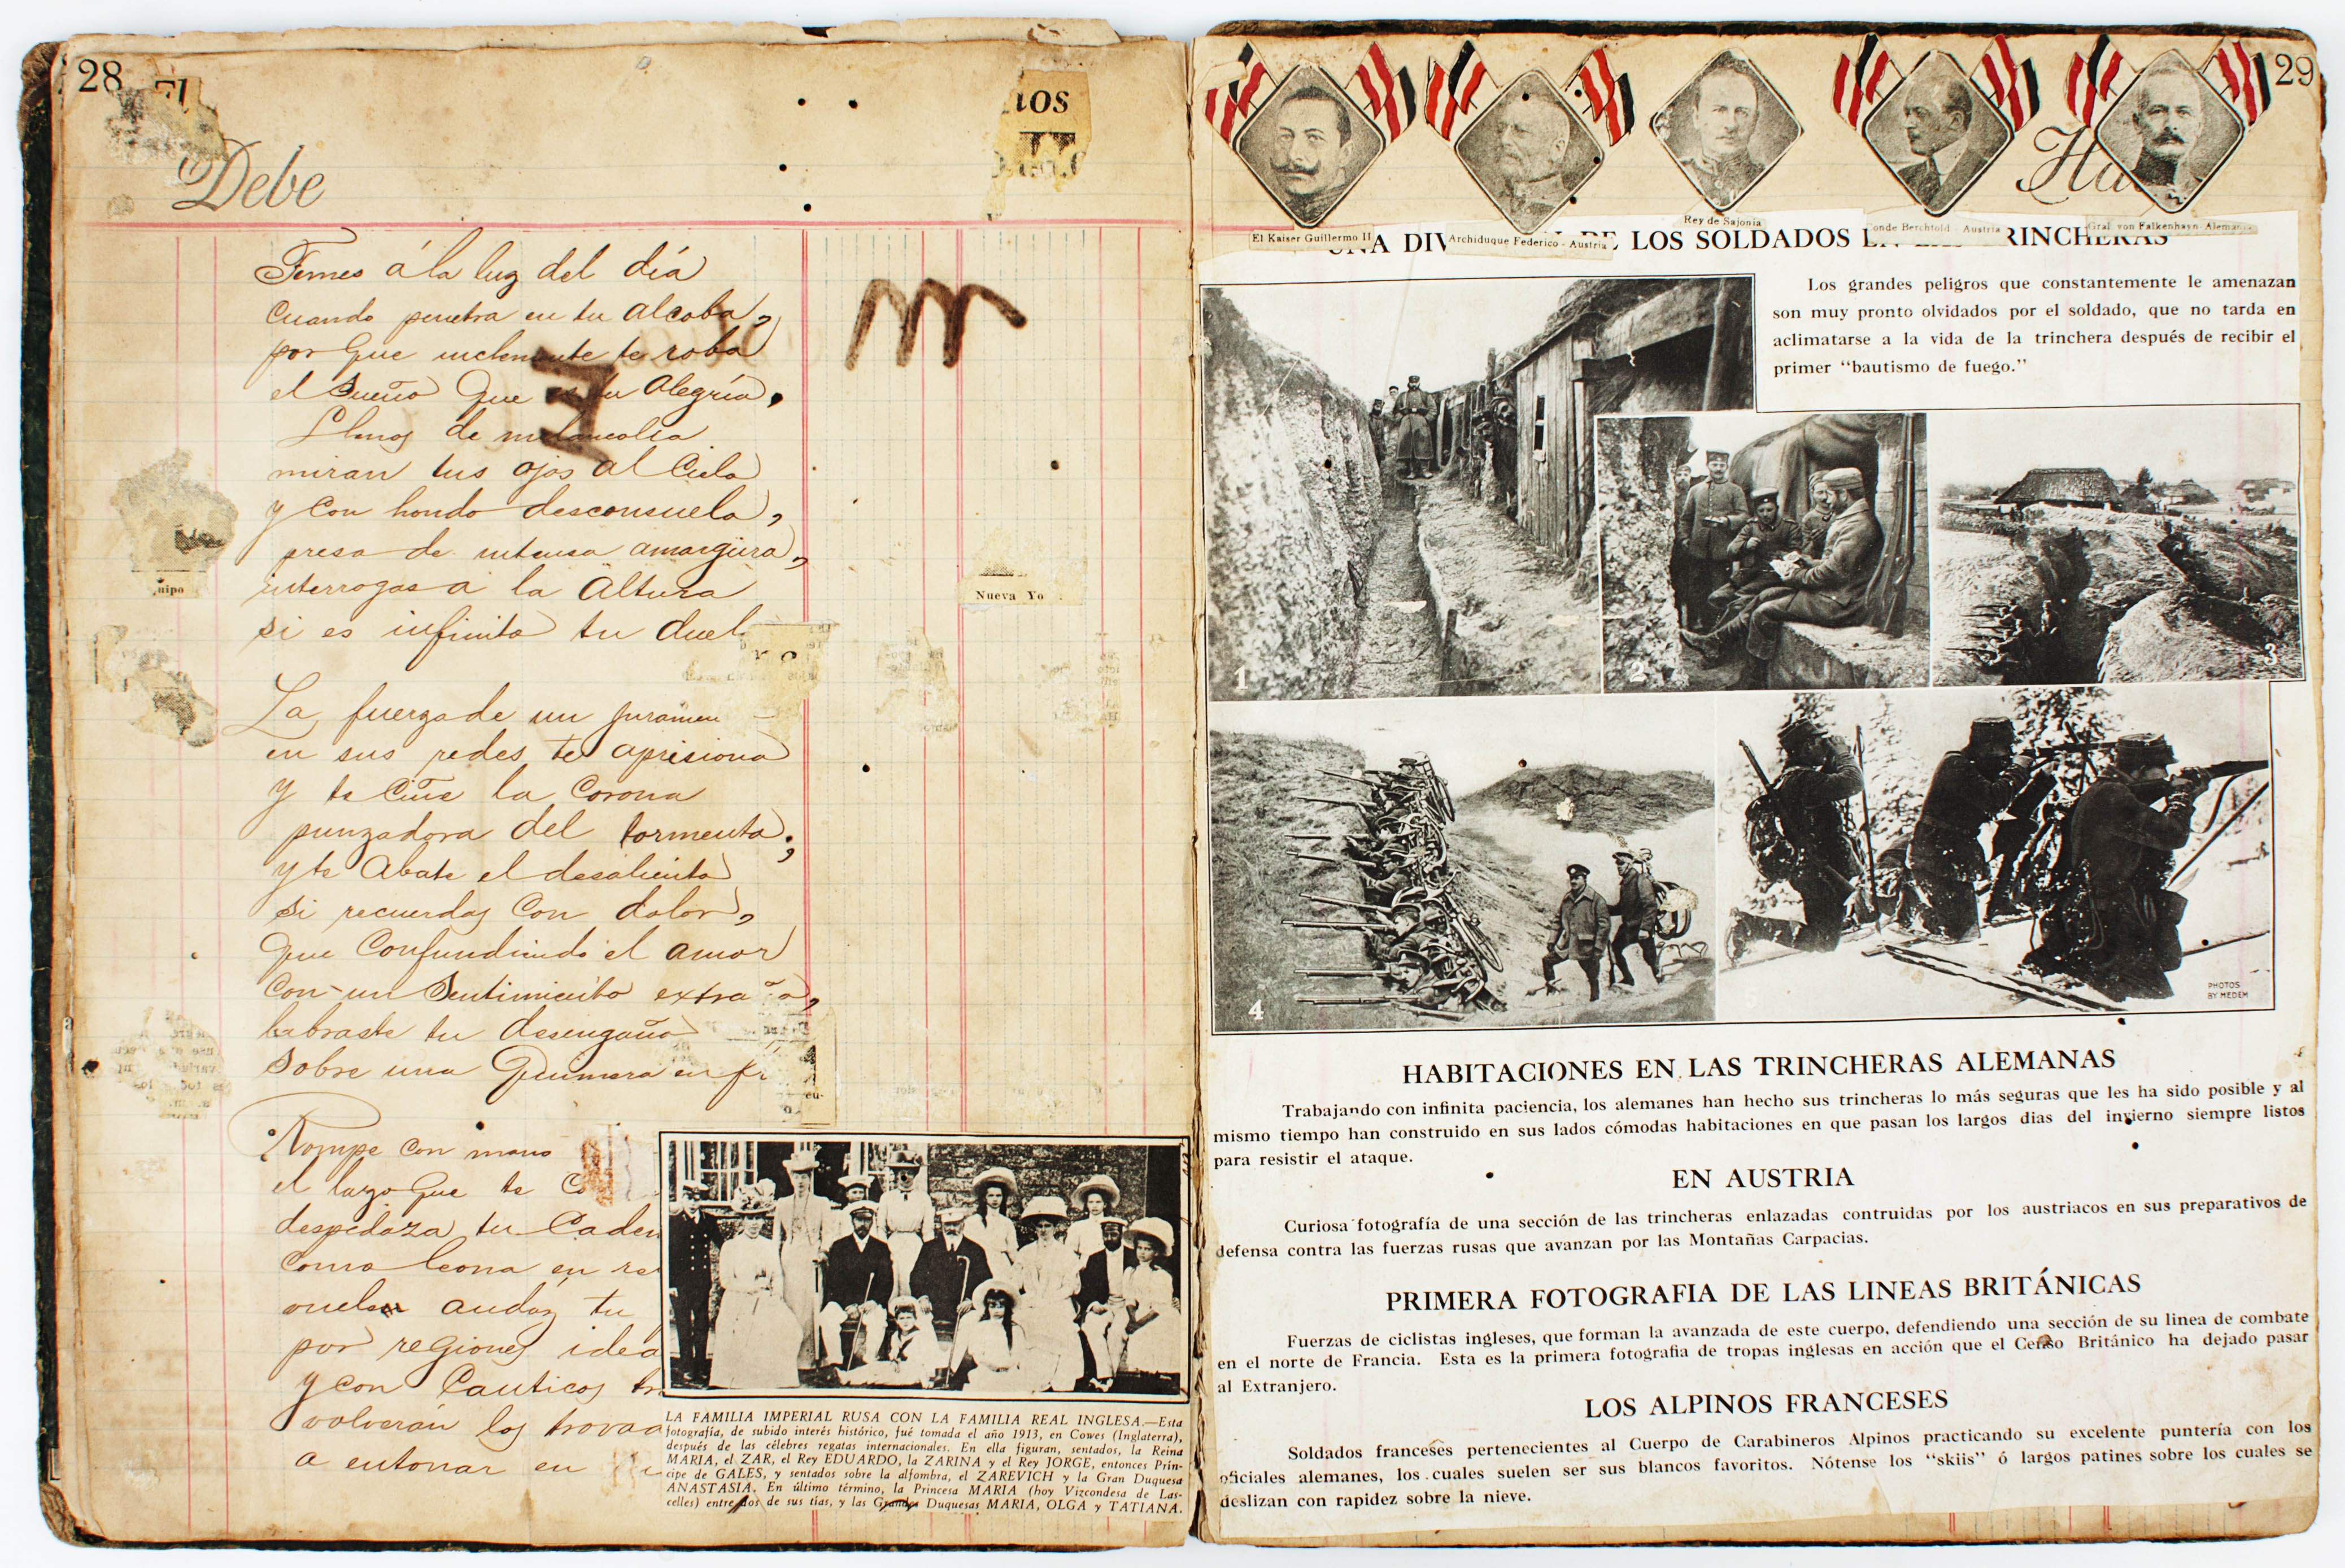 28
Debe
Temes á la luz del día
Cuando penetra en tu alcoba,
por que inclemente te roba
el Sueño que es tu Alegría.
Llenos de melancolía
miran tus ojos al Cielo
y con hondo desconsuelo,
presa de intensa amargura,
interrogas a la Altura
si es infinito tu duel
La fuerza de un juramen
en sus redes te aprisiona
y te Ciñe la Corona
punzadora del tormento;
y te Abate el desaliento
si recuerdas Con dolor,
que Confundiendo el amor
Con un Sentimiento extraño,
labraste tu desengaño
Sobre una Quimera en
Rompe con mano
el lazo que te
despedaza tu Caden
Como leona en
audaz tu
por regiones idea
y con Canticos
volverán los trovad
a entonar en
tos
m
uipo
Nueva Yo
LA FAMILIA IMPERIAL RUSA CON LA FAMILIA REAL INGLESA.—Esta
fotografía, de subido interés histórico, fué tomada el año 1913, en Cowes (Inglaterra),
después de las célebres regatas internacionales. En ella figuran, sentados, la Reina
MARIA, el ZAR, el Rey EDUARDO, la ZARINA y el Rey JORGE, entonces Prín-
cipe de GALES, y sentados sobre la alfombra, el ZAREVICH y la Gran Duquesa
ANASTASIA. En último término, la Princesa MARIA (hoy Vizcondesa de Las-
celles) entre dos de sus tías, y las Grandes Duquesas MARIA, OLGA y TATIANA.
29
Ha
El Kaiser Guillermo II
Archiduque Federico - Austria
Rey de Sajonia
Conde Berchtold - Austria
Gral von Falkenhayn Alemania
UNA DIV DE LOS SOLDADOS EN LAS TRINCHERAS
Los grandes peligros que constantemente le amenazan
son muy pronto olvidados por el soldado, que no tarda en
aclimatarse a la vida de la trinchera después de recibir el
primer “bautismo de fuego.”
1
2
3
4
5
PHOTOS
BY MEDEM
HABITACIONES EN LAS TRINCHERAS ALEMANAS
Trabajando con infinita paciencia, los alemanes han hecho sus trincheras lo más seguras que les ha sido posible y al
mismo tiempo han construido en sus lados cómodas habitaciones en que pasan los largos dias del invierno siempre listos
para resistir el ataque.
EN AUSTRIA
Curiosa fotografía de una sección de las trincheras enlazadas contruidas por los austriacos en sus preparativos de
defensa contra las fuerzas rusas que avanzan por las Montañas Carpacias.
PRIMERA FOTOGRAFIA DE LAS LINEAS BRITÁNICAS
Fuerzas de ciclistas ingleses, que forman la avanzada de este cuerpo, defendiendo una sección de su linea de combate
en el norte de Francia. Esta es la primera fotografia de tropas inglesas en acción que el Censo Británico ha dejado pasar
al Extranjero.
LOS ALPINOS FRANCESES
Soldados franceses pertenecientes al Cuerpo de Carabineros Alpinos practicando su excelente puntería con los
oficiales alemanes, los cuales suelen ser sus blancos favoritos. Nótense los “skiis” ó largos patines sobre los cuales se
deslizan con rapidez sobre la nieve.